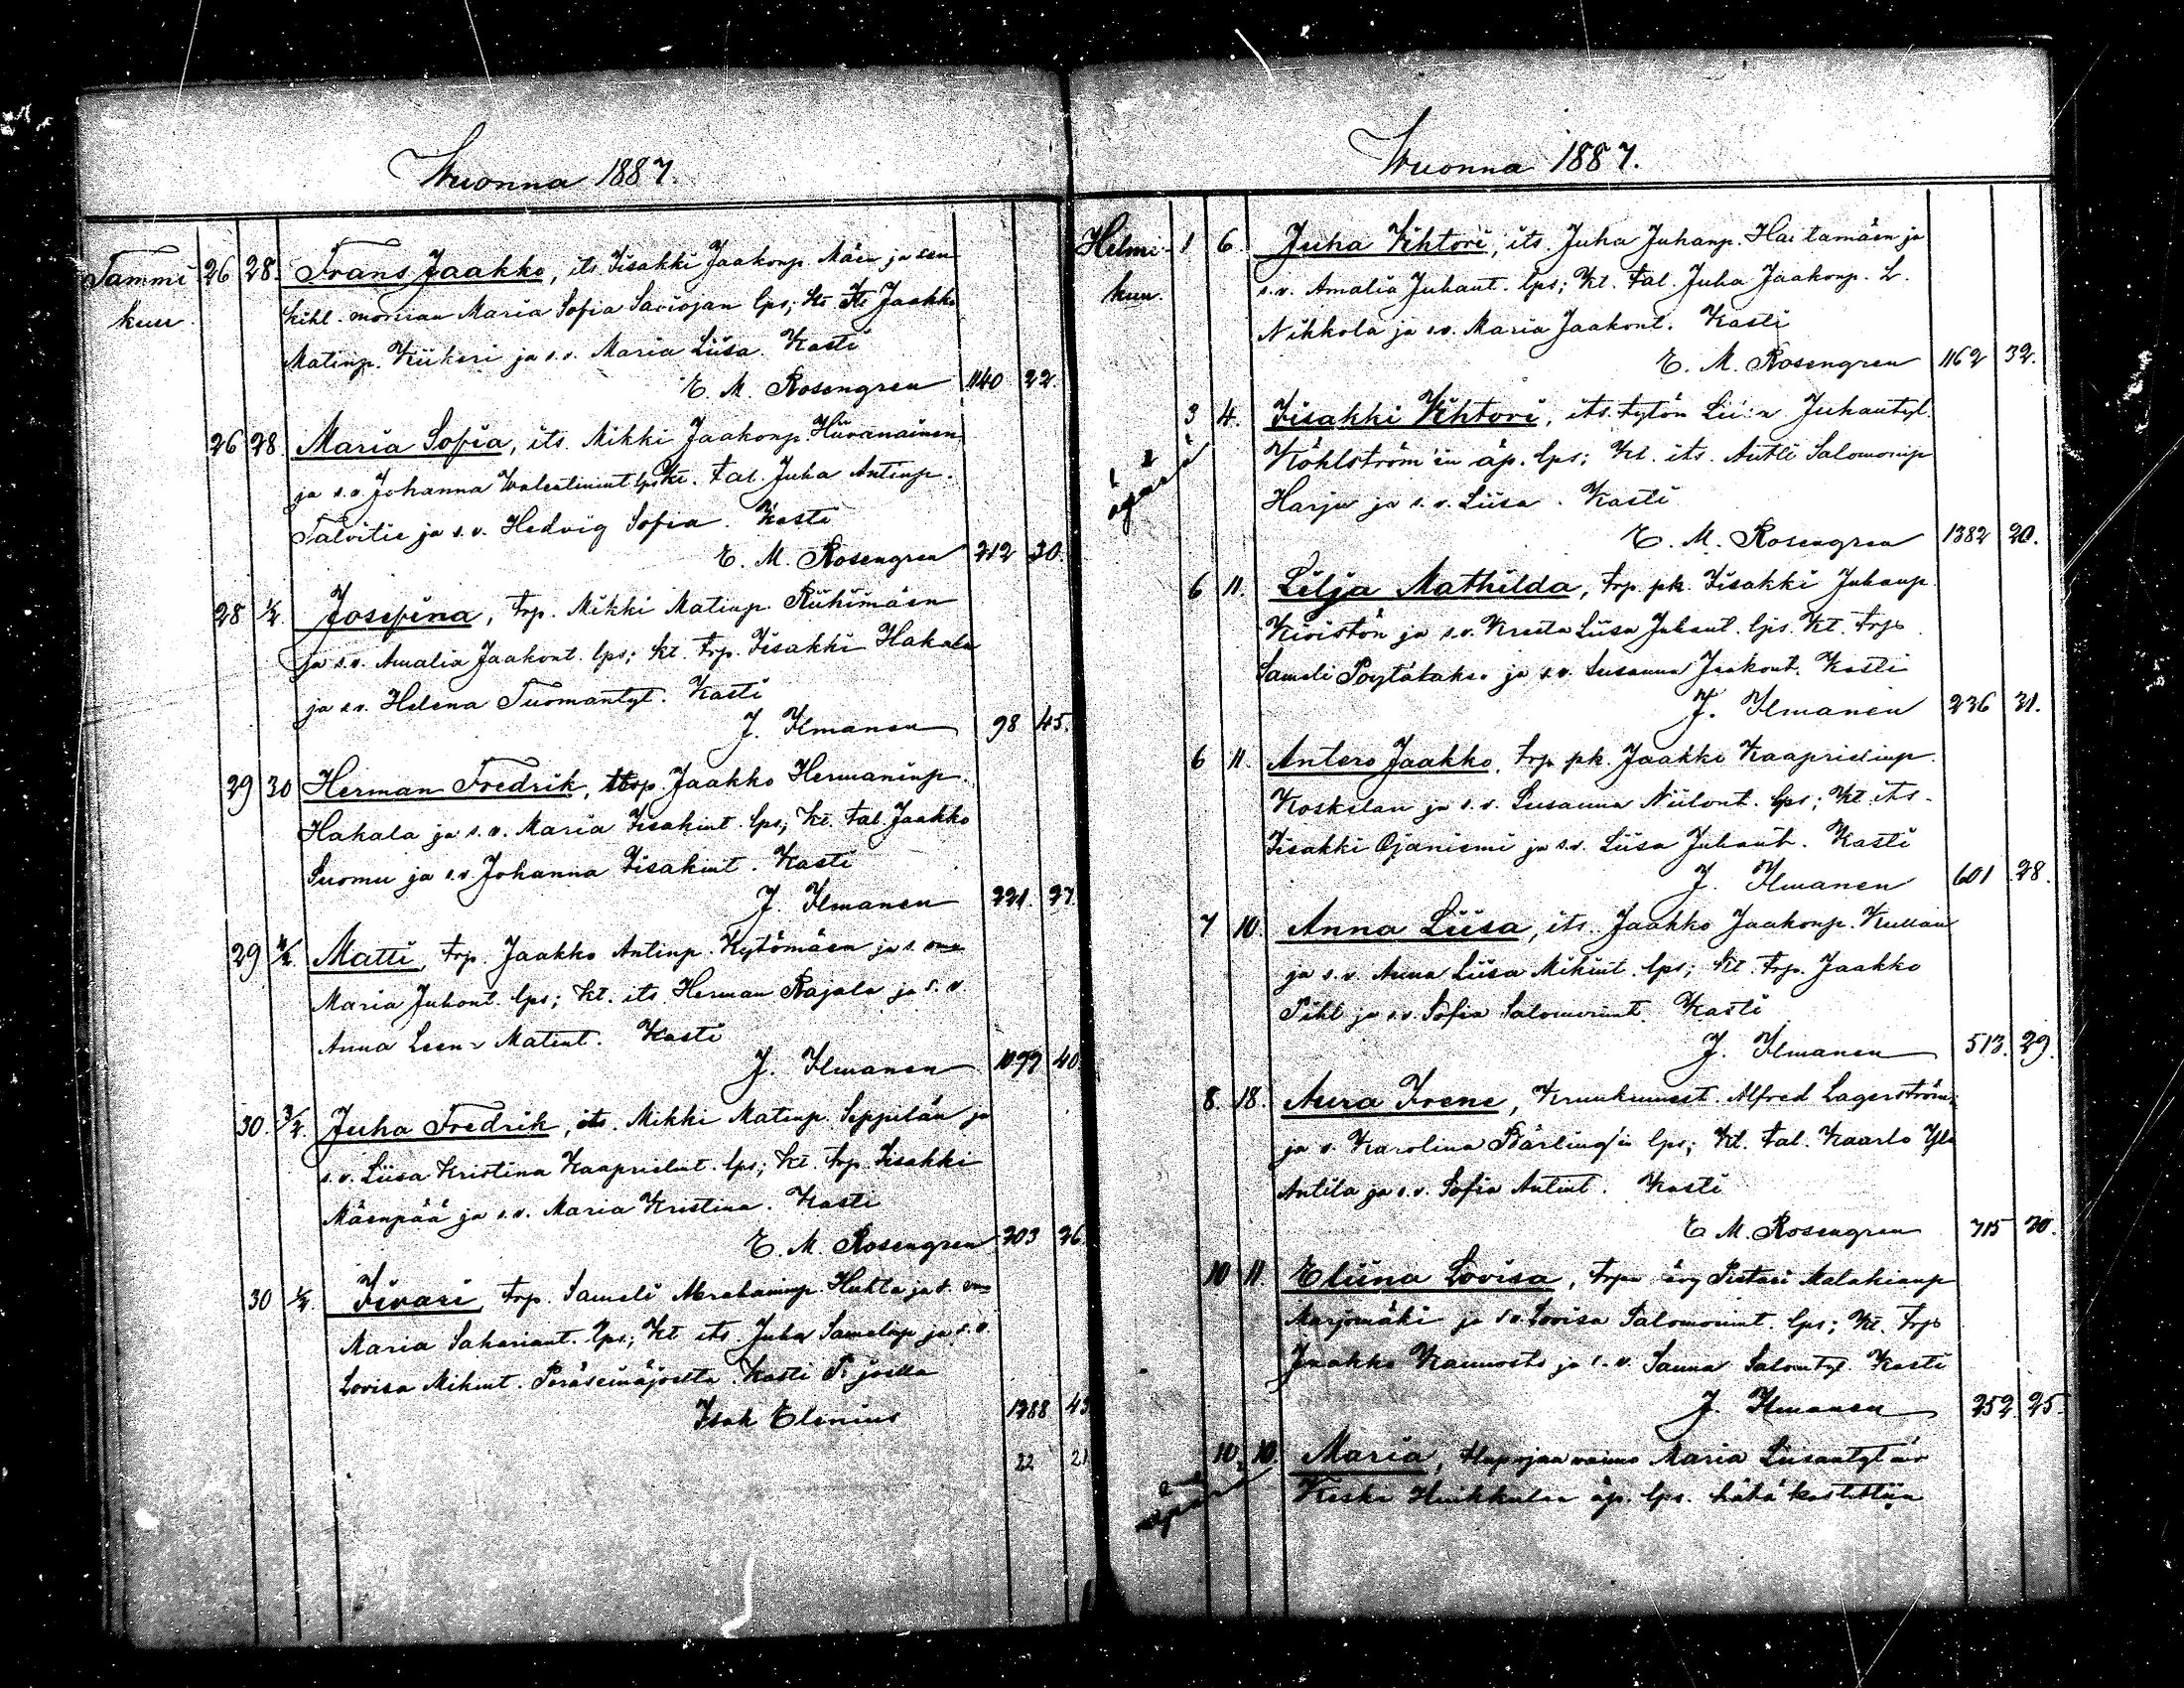 Wuonna 1887.
Tammi 26 28. Frans Jaakko, its Iisakki Jaakonp. Mäen ja sen
kuu. kihl. morsian Maria Sofia Saviojan lps; Kt Jaakko
Matinp. Kiikeri ja s.v. Maria Liisa. Kasti
E. M. Rosengren 1140 22.
26 28 Maria Sofia, its. Mikki Jaakonp. Hiivanainen
ja s.v. Johanna Walentinint lps Kt. tal. Juha Antinp.
Talvitie ja s.v. Hedvig Sofia. Kasti
E. M. Rosengren 712 30.
28 1/2. Josefina, trp. Mikki Matinp. Riihimäen
ja s.v. Amalia Jaakont. lps; kt. trp. Iisakki Hakala
ja s.v. Helena Tuomantyt. Kasti
J. Ilmanen 98 45.
29 30 Herman Fredrik, trp. Jaakko Hermaninp.
Hakala ja s.v. Maria Iisakint. lps; Kt. tal. Jaakko
Suomu ja s.v. Johanna Iisakint. Kasti
J. Ilmanen 221. 27
29 Matti, trp. Jaakko Antinp. Kytömäen ja s.
Maria Juhont. lps; kt. its Herman Rajala ja s.v.
Anna Leena Matint. Kasti
J. Ilmanen 1099 40
30. 3/2. Juha Fredrik, its. Mikki Matinp. Seppilän ja
s.v. Liisa Kristina Kaaprielint. lps; kt. trp. Iisakki
Mäenpää ja s.v. Maria Kristina. Kasti
E. M. Rosengren 203 26.
30 1/2. Iivari, trp. Sameli Abrahaminp. Huhta ja s.
Maria Sakariant. lps; Kt its. Juha Samelinp ja s.v.
Lovisa Mikint. Peräseinäjoelta. Kasti P. joella
Isak Elenius 1288 43
22 21
Wuonna 1887.
Helmi- 1 6. Juha Vihtori, its. Juha Juhanp. Haitamäen ja
kuu. s.v. Amalia Juhant. lps; Kt. tal. Juha Jaakonp. L.
Nikkola ja s.v. Maria Jaakont. Kasti
E. M. Rosengren 1162 32.
3 4. Iisakki Vihtori, its. tytön Liisa Juhantyt.
Köhlström'in äp. lps; Kt. its. Antti Salomonip
Harju ja s.v. Liisa. Kasti
E. M. Rosengren 1382 20.
6 11. Lilja Mathilda, trp. pk. Iisakki Juhanp.
Kiviston ja s.v. Kreeta Liisa Juhant. lps. Kt. trp
Sameli Pöytälaks. ja s.v. Susanna Jaakont. Kasti
J. Ilmanen 236 31.
6 11. Antero Jaakko, trp pk. Jaakko Kaaprielinp.
Koskelan ja s.v. Susanna Niilont. lps; Kt its.
Iisakki Ojaniemi ja s.v. Liisa Juhant. Kasti
J. Ilmanen 601 28.
7 10. Anna Liisa, its. Jaakko Jaakonp. Kullan
ja s.v. Anna Liisa Mikint. lps; Kt. trp. Jaakko
Pihl ja s.v. Sofia Salomonint. Kasti
J. Ilmanen 513. 29.
8. 18. Aura Irene, Kruukumest. Alfred Lagerström
ja v. Karolina Bärling'in lps; Kt. tal. Kaarlo Yli
Antila ja s.v. Sofia Antint. Kasti
E M. Rosengren 715 20.
10 11. Eliina Lovisa, trp Pietari Malakianp
Marjomäki ja s.v. Lovisa Salomonint. lps; Kt. trp
Jaakko Kaunosto ja s.v. Sanna Salomtyt. Kasti
J. Ilmanen 252 25.
10 10. Maria, vaimo Maria Liisantyt
Keski äp. lps. hätä kastettiin